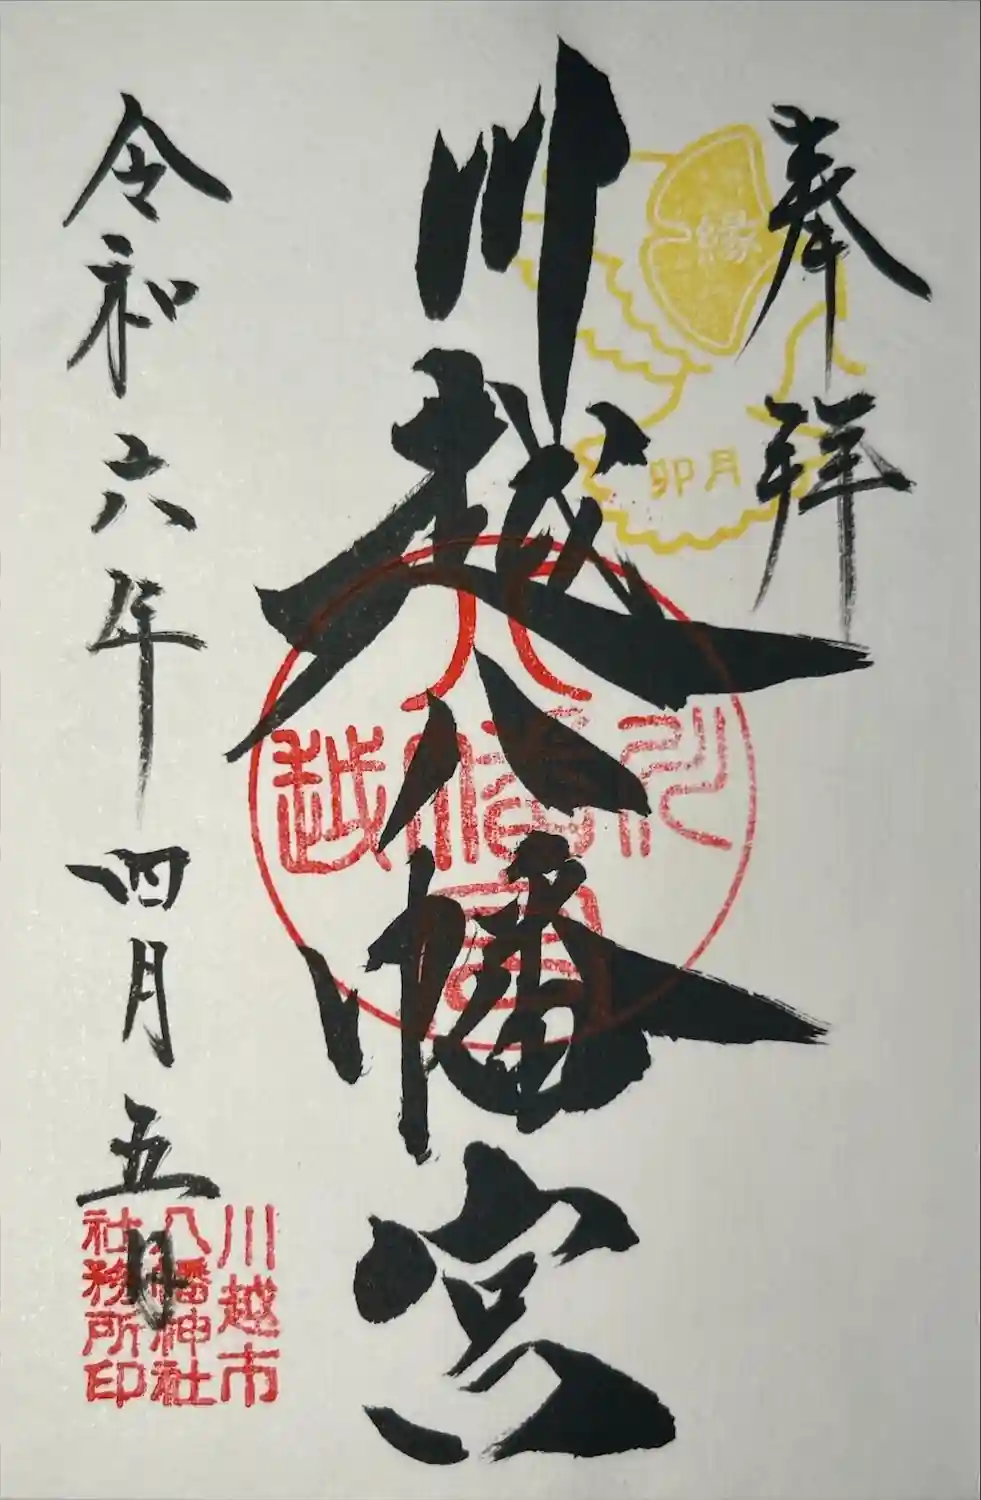 奉拝
縁
卯月
川越八幡宮
川越八幡宮
令和六年四月五日
川越市
八幡神社
社務所印